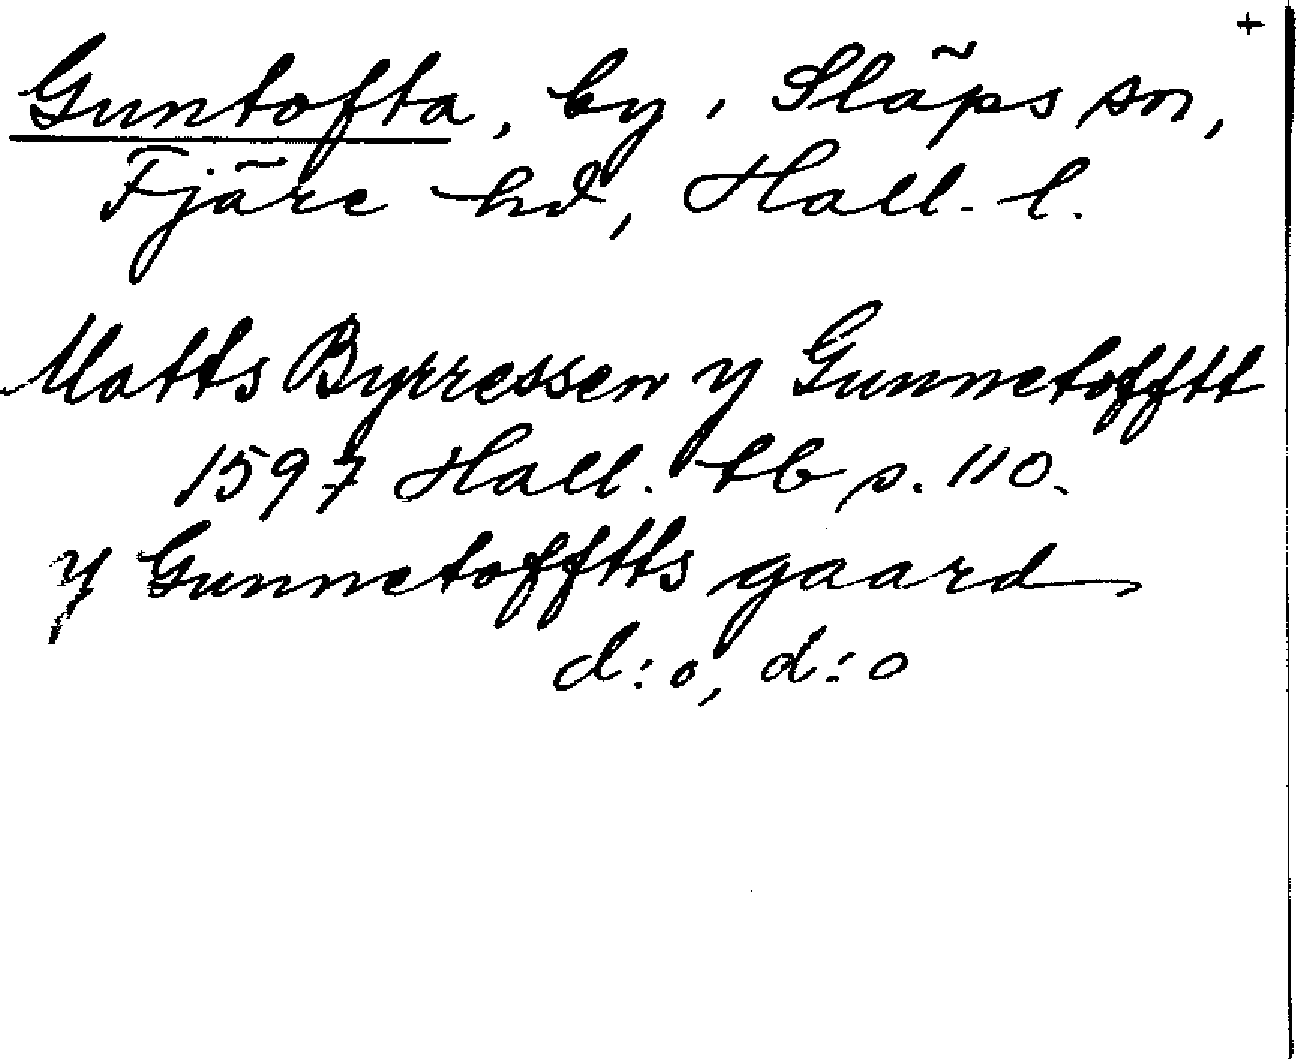 +
Guntofta, by, Släps sn,
Fjäre hd, Hall. l.
Matts Byrressen y Gunnetofftt
1597 Hall. tb s. 110.
y Gunnetofftts gaard
d:o, d:o